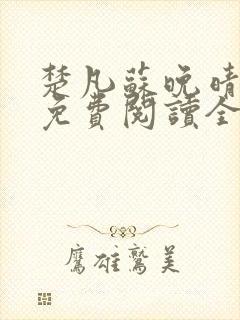 楚凡蘇晚晴
免費閱讀全
鷹雄鷲美